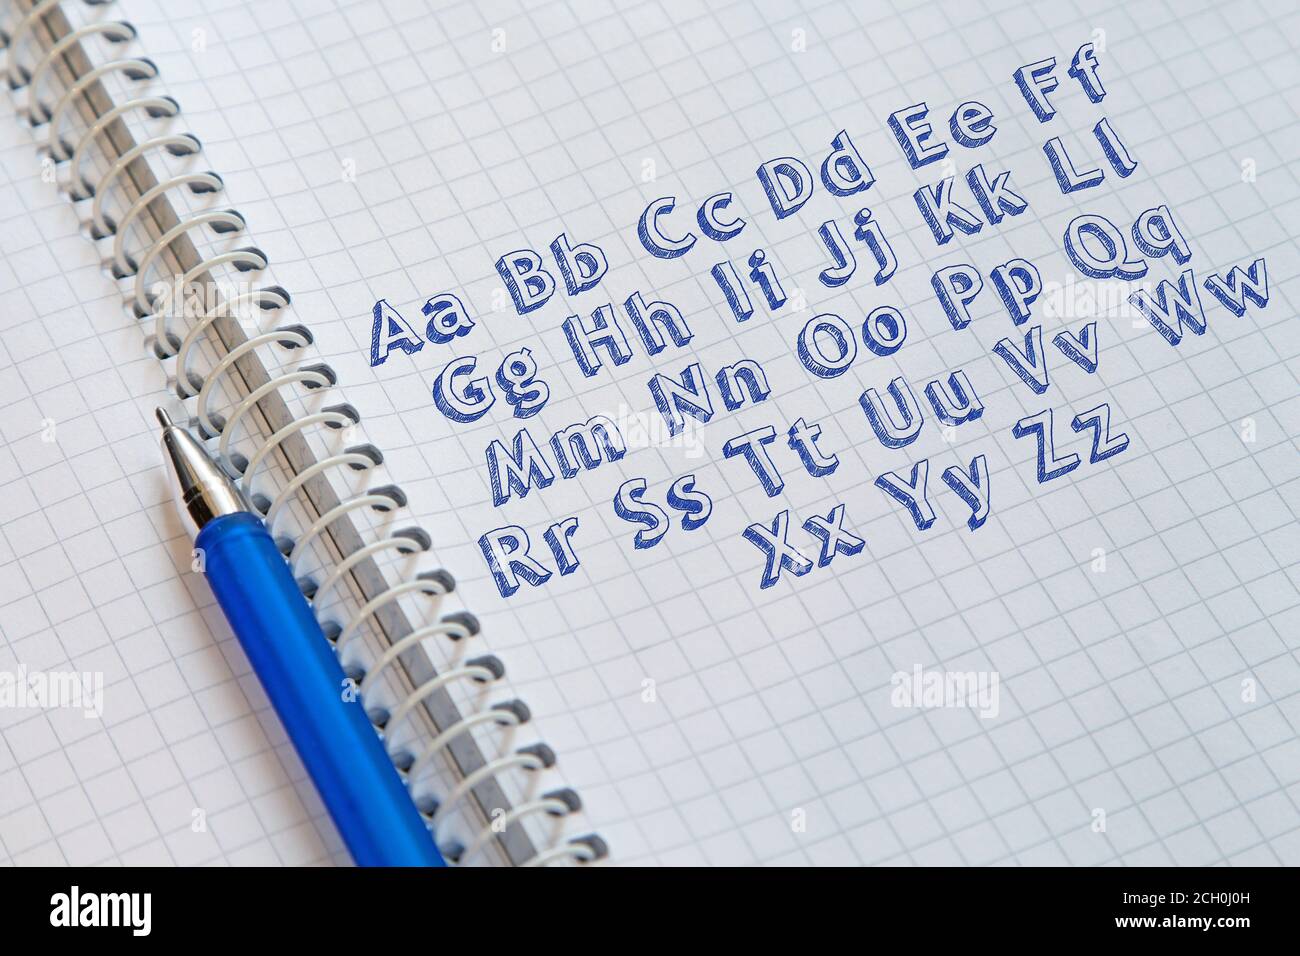 Aa Bb Cc Dd Ee Ff
Gg Hh Ii Jj Kk Ll
Mm Nn Oo Pp Qq
Rr Ss Tt Uu Vv Ww
Xx Yy Zz
alamy
Image ID: 2CH0J0H
www.alamy.com